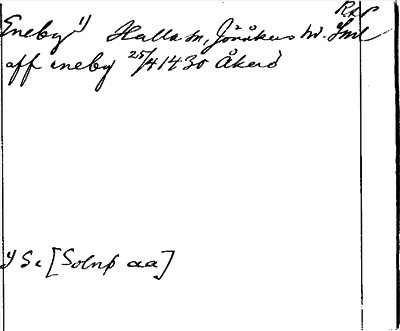 Eneby 1) Halla sn, Jönåkers hd. Sml
aff eneby 25/4 1430 Åkerö
1) Se [Solnþ aa]